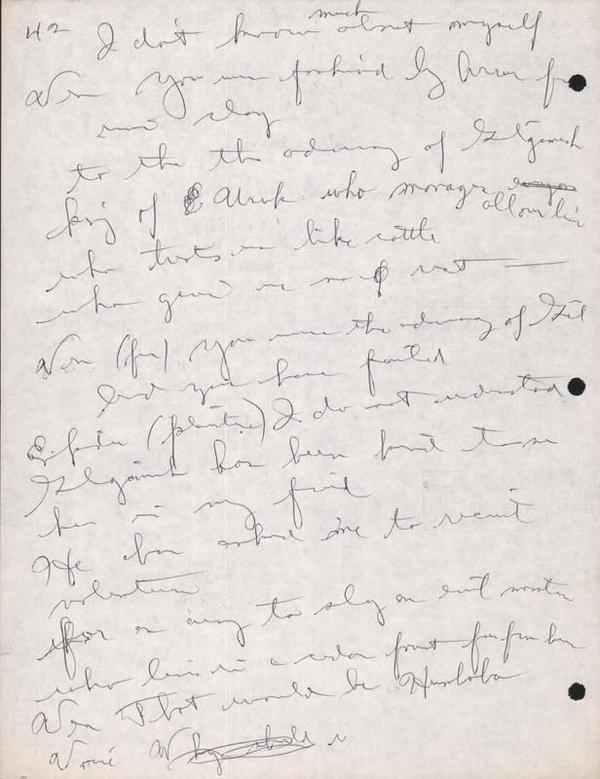 42 I don't know much about myself
you were fashioned by Aruru for
to the the adversary of Gilgamesh
king of Uruk who manages all our lives
who treats us like cattle
who gives us no rest —
(fur) you were the adversary of Gil
And you have failed
Enkidu (plaintive) I do not understand
Gilgamesh has been kind to me
he is my friend
He has asked me to recruit
volunteers
for an army to slay an evil monster
who lives in a cedar forest far from here
That would be Humbaba